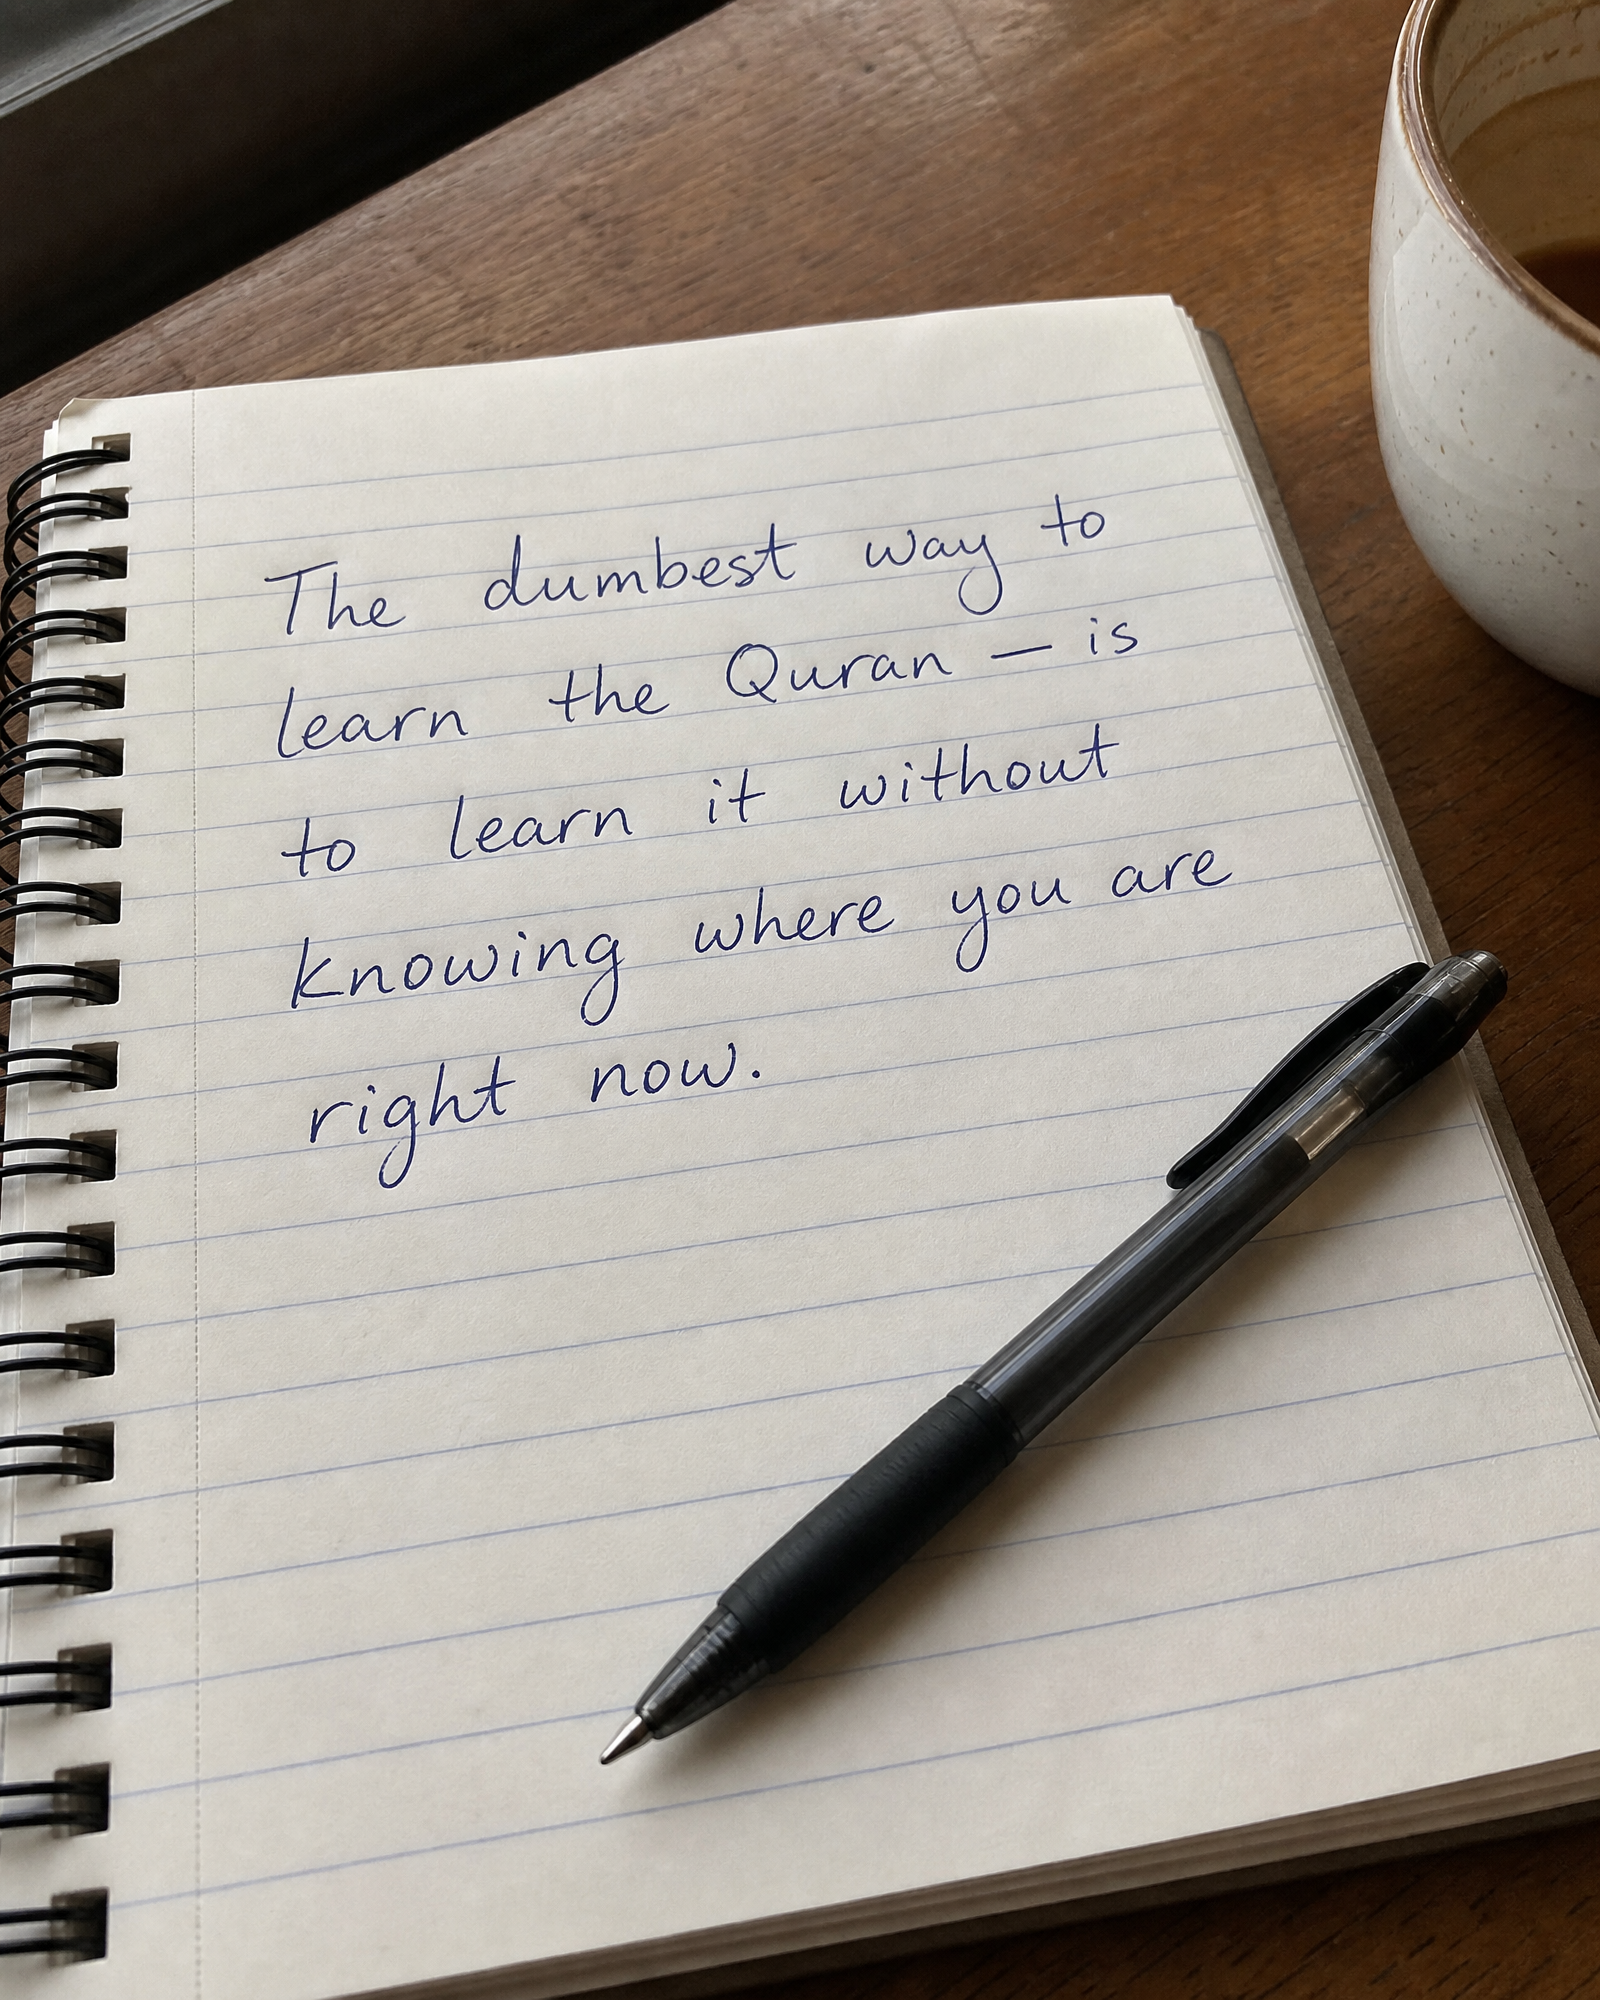 The dumbest way to
learn the Quran — is
to learn it without
knowing where you are
right now.